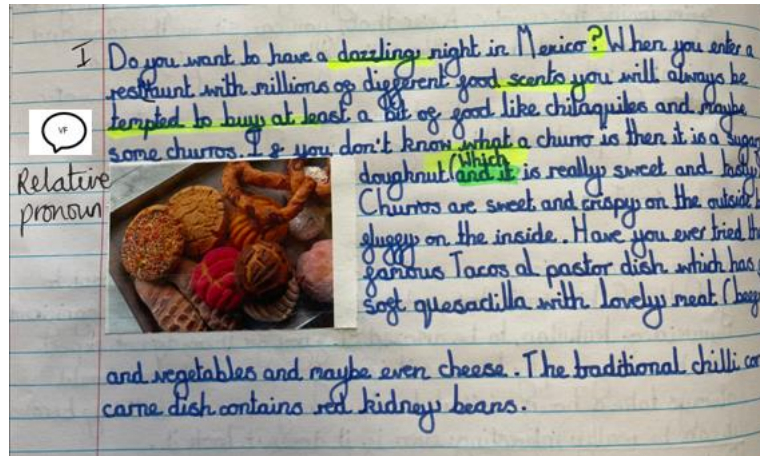 I Do you want to have a dazzling night in Mexico? When you enter a
restraunt with millions of different food scents you will always be
VF
tempted to buy at least a bit of food like chilaquiles and maybe
some churros. If you don't know what a churro is then it is a sugar
Relative
pronoun
doughnut (and it is really sweet and tasty)
Which
Churros are sweet and crispy on the outside
fluffy on the inside. Have you ever tried the
famous Tacos al pastor dish which has
soft quesadilla with lovely meat (beef
and vegetables and maybe even cheese. The traditional chilli con
carne dish contains red kidney beans.